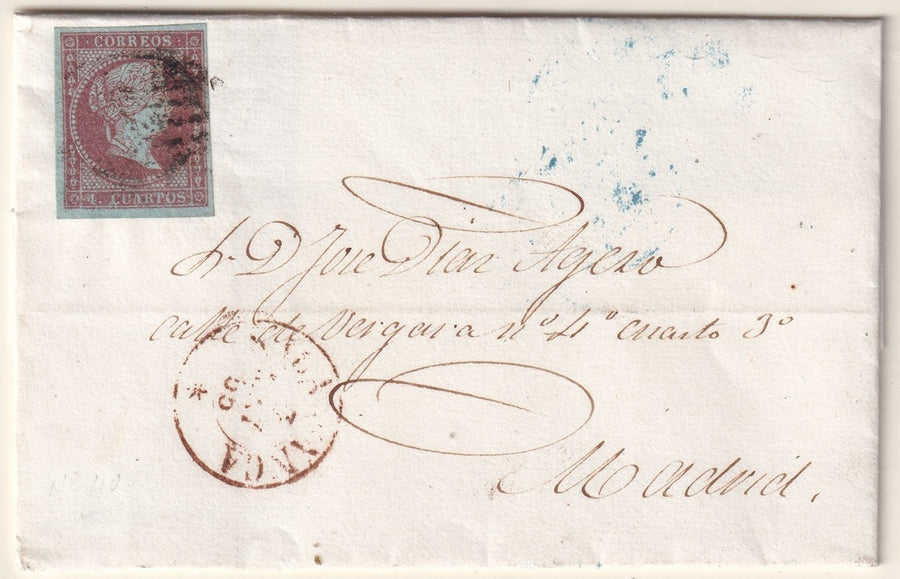 CORREOS
4. CUARTOS
Sr. D José Diaz Agero
calle de Vergara nº 4º cuarto 3º
Madrid.
Nº 40